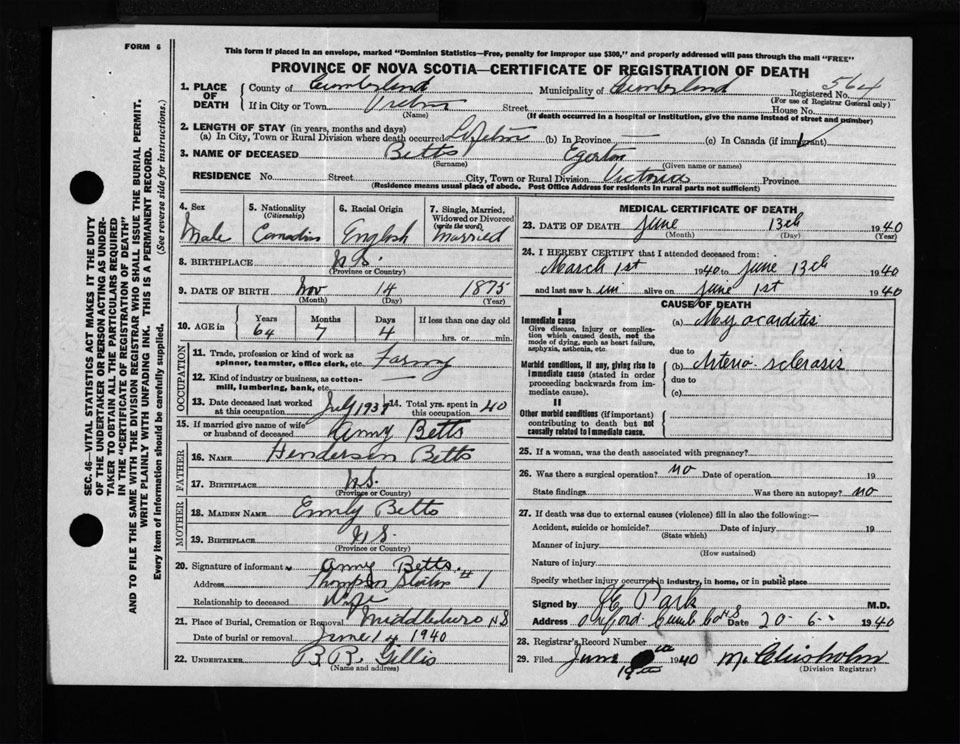 FORM 6
This form if placed in an envelope, marked "Dominion Statistics—Free, penalty for improper use $300," and properly addressed will pass through the mail "FREE"
PROVINCE OF NOVA SCOTIA—CERTIFICATE OF REGISTRATION OF DEATH
564
1. PLACE OF DEATH
County of Cumberland Municipality of Cumberland Registered No.
(For use of Registrar General only)
If in City or Town Street House No.
(Name) (If death occurred in a hospital or institution, give the name instead of street and number)
2. LENGTH OF STAY (in years, months and days)
(a) In City, Town or Rural Division where death occurred Lifetime (b) In Province — (c) In Canada (if immigrant)
3. NAME OF DECEASED Betts Egerton
(Surname) (Given name or names)
RESIDENCE No. Street City, Town or Rural Division Victoria Province
(Residence means usual place of abode. Post Office Address for residents in rural parts not sufficient)
4. Sex
Male
5. Nationality (Citizenship)
Canadian
6. Racial Origin
English
7. Single, Married, Widowed or Divorced (write the word)
Married
8. BIRTHPLACE N.S.
(Province or Country)
9. DATE OF BIRTH Nov 14 1875
(Month) (Day) (Year)
10. AGE in Years Months Days If less than one day old
64 7 4 hrs. or min.
OCCUPATION
11. Trade, profession or kind of work as spinner, teamster, office clerk, etc.
12. Kind of industry or business, as cotton-mill, lumbering, bank, etc. —
13. Date deceased last worked at this occupation July 14. Total yrs. spent in 40
15. If married give name of wife or husband of deceased Betts
FATHER
16. NAME Henderson Betts
17. BIRTHPLACE N.S.
(Province or Country)
MOTHER
18. MAIDEN NAME Emily Betts
19. BIRTHPLACE N.S.
(Province or Country)
20. Signature of informant Betts.
Address Thompson Station #1
Relationship to deceased Wife
21. Place of Burial, Cremation or Removal Middleboro N S
Date of burial or removal June 14 1940
22. UNDERTAKER Gillis
(Name and address)
MEDICAL CERTIFICATE OF DEATH
23. DATE OF DEATH June 13th 1940
(Month) (Day) (Year)
24. I HEREBY CERTIFY that I attended deceased from:
March 1st 1940 to June 13th 1940
and last saw him alive on June 1st 1940
CAUSE OF DEATH
I
Immediate cause
Give disease, injury or complication which caused death, not the mode of dying, such as heart failure, asphyxia, asthenia, etc.
(a) Myocarditis
due to
Morbid conditions, if any, giving rise to immediate cause (stated in order proceeding backwards from immediate cause).
(b) Arterio sclerosis
due to
(c)
II
Other morbid conditions (if important) contributing to death but not causally related to immediate cause.
25. If a woman, was the death associated with pregnancy?
26. Was there a surgical operation? no Date of operation 19
State findings Was there an autopsy? no
27. If death was due to external causes (violence) fill in also the following:—
Accident, suicide or homicide? Date of injury 19
(State which)
Manner of injury
(How sustained)
Nature of injury
Specify whether injury occurred in industry, in home, or in public place
Signed by Park M.D.
Address Oxford Date 20-6- 1940
28. Registrar's Record Number
29. Filed June 1940 M. Chisholm
19th (Division Registrar)
SEC. 46—VITAL STATISTICS ACT MAKES IT THE DUTY
OF THE UNDERTAKER OR PERSON ACTING AS UNDER-
TAKER TO OBTAIN ALL THE PARTICULARS REQUIRED
IN THE "CERTIFICATE OF REGISTRATION OF DEATH"
AND TO FILE THE SAME WITH THE DIVISION REGISTRAR WHO SHALL ISSUE THE BURIAL PERMIT.
WRITE PLAINLY WITH UNFADING INK. THIS IS A PERMANENT RECORD.
Every item of information should be carefully supplied. (See reverse side for instructions.)